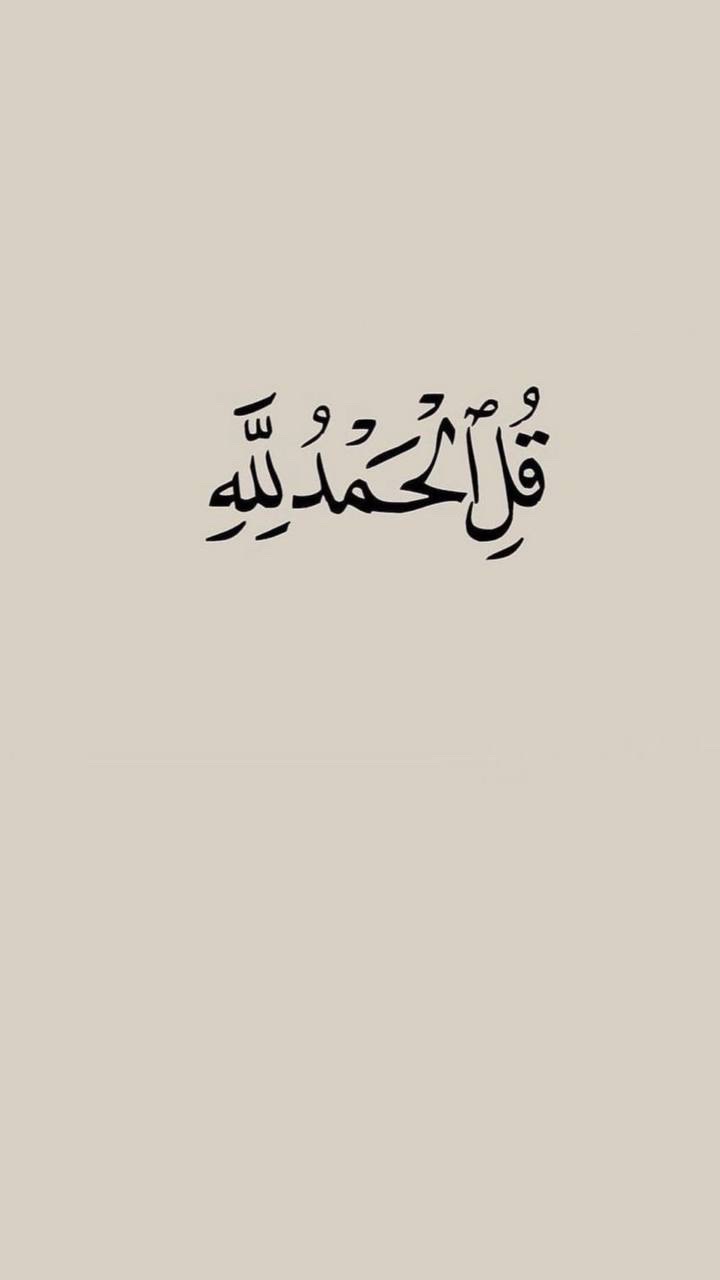 قُلِ ٱلْحَمْدُ لِلَّهِ